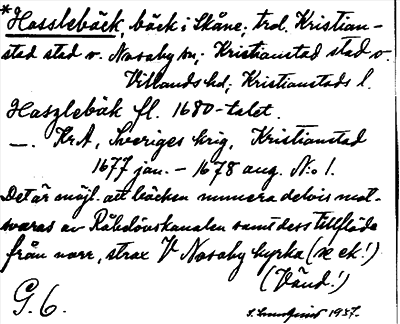 *Hasslebäck, bäck i Skåne, trol. Kristian-
stad stad o. Nosaby sn, Kristianstad stad o.
Villands hd, Kristianstads l.
Haszlebäk fl. 1680-talet.
—. KrA, Sveriges krig, Kristianstad
1677 jan. – 1678 aug. N:o 1.
Det är möjl. att bäcken numera delvis mot-
svaras av Råbelövskanalen samt dess tillflöde
från norr, strax V Nosaby kyrka (se ek!)
(Vänd!)
G. 6.
1937.